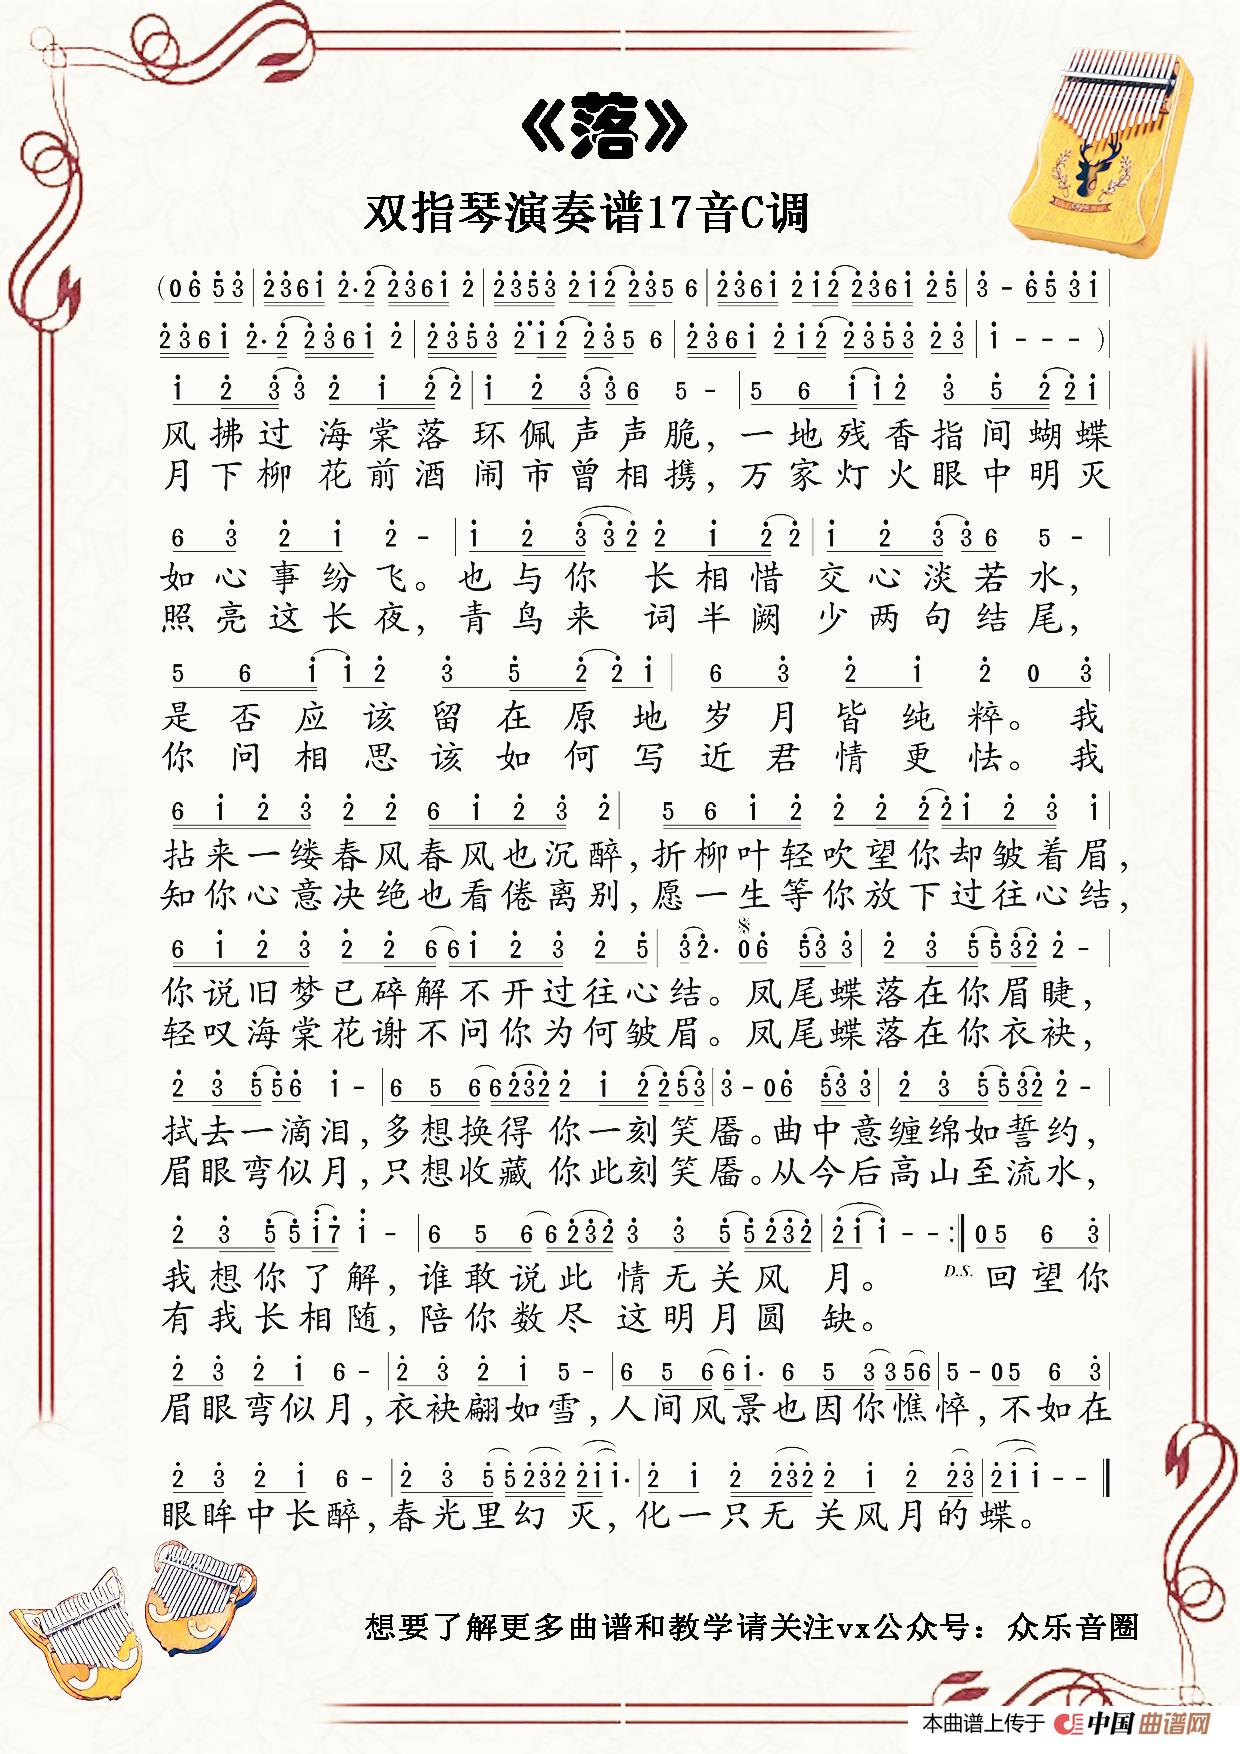 《落》
双指琴演奏谱17音C调
(0 6 5 3 | 2 3 6 1 2· 2 2 3 6 1 2 | 2 3 5 3 2 1 2 2 3 5 6 | 2 3 6 1 2 1 2 2 3 6 1 2 5 | 3 - 6 5 3 1 |
2 3 6 1 2· 2 2 3 6 1 2 | 2 3 5 3 2 1 2 2 3 5 6 | 2 3 6 1 2 1 2 2 3 5 3 2 3 | 1 - - - ) |
1 2 3 3 2 1 2 2 | 1 2 3 3 6 5 - | 5 6 1 1 2 3 5 2 2 1 |
风拂过 海棠落 环佩声声脆，一地残香指间蝴蝶
月下柳 花前酒 闹市曾相携，万家灯火眼中明灭
6 3 2 1 2 - | 1 2 3 3 2 2 1 2 2 | 1 2 3 3 6 5 - |
如心事纷飞。也与你 长相惜 交心淡若水，
照亮这长夜，青鸟来 词半阙 少两句结尾，
5 6 1 1 2 3 5 2 2 1 | 6 3 2 1 2 0 3 |
是否应该留在原地岁月皆纯粹。我
你问相思该如何写近君情更怯。我
6 1 2 3 2 2 6 1 2 3 2 | 5 6 1 2 2 2 2 2 1 2 3 1 |
拈来一缕春风春风也沉醉，折柳叶轻吹望你却皱着眉，
知你心意决绝也看倦离别，愿一生等你放下过往心结，
6 1 2 3 2 2 6 6 1 2 3 2 5 | 3 2· 0 6 5 3 3 | 2 3 5 5 3 2 2 - |
你说旧梦已碎解不开过往心结。凤尾蝶落在你眉睫，
轻叹海棠花谢不问你为何皱眉。凤尾蝶落在你衣袂，
2 3 5 5 6 1 - | 6 5 6 6 2 3 2 2 1 2 2 5 3 | 3 - 0 6 5 3 3 | 2 3 5 5 3 2 2 - |
拭去一滴泪，多想换得 你一刻笑靥。曲中意缠绵如誓约，
眉眼弯似月，只想收藏 你此刻笑靥。从今后高山至流水，
2 3 5 5 1 7 1 - | 6 5 6 6 2 3 2 3 3 5 5 2 3 2 | 2 1 1 - - :‖ 0 5 6 3 |
我想你了解，谁敢说此 情无关风 月。 D.S. 回望你
有我长相随，陪你数尽 这明月圆 缺。
2 3 2 1 6 - | 2 3 2 1 5 - | 6 5 6 6 1· 6 5 3 3 5 6 | 5 - 0 5 6 3 |
眉眼弯似月，衣袂翩如雪，人间风景也因你憔悴，不如在
2 3 2 1 6 - | 2 3 5 5 2 3 2 2 1 1· | 2 1 2 2 3 2 2 1 2 2 3 | 2 1 1 - - ‖
眼眸中长醉，春光里幻 灭，化一只无 关风月的蝶。
想要了解更多曲谱和教学请关注vx公众号：众乐音圈
本曲谱上传于 中国曲谱网